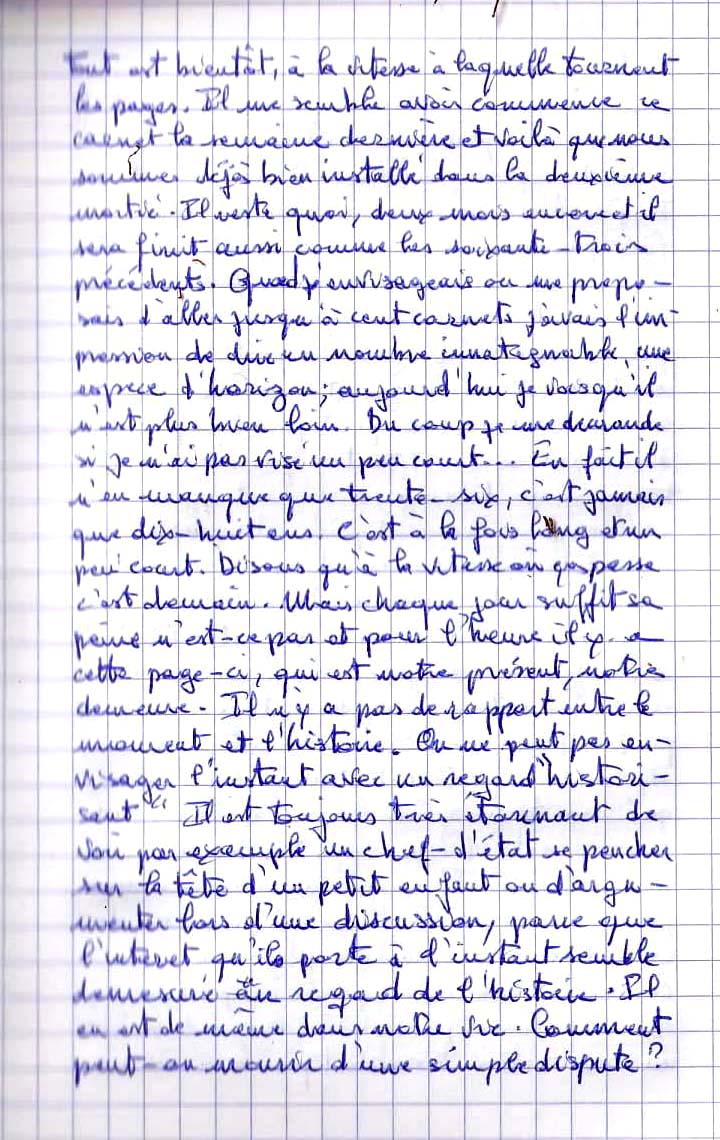 Tout est bientôt, à la vitesse à laquelle tournent
les pages. Il me semble avoir commencé ce
carnet la semaine dernière et voilà que nous
sommes déjà bien installé dans la deuxième
moitié. Il reste quoi, deux mois encore et il
sera finit aussi comme les soixante-trois
précédents. Quand j'envisageais ou me propo-
sais d'aller jusqu'à cent carnets j'avais l'im-
pression de dire un nombre innatagnable, une
espèce d'horizon; aujourd'hui je vois qu'il
n'est plus bien loin. Du coup je me demande
si je n'ai pas visé un peu court... En fait il
n'en manque que trente-six, c'est jamais
que dix-huit ans. C'est à la fois long et un
peu court. Disons qu'à la vitesse où ça passe
c'est demain. Mais chaque jour suffit sa
peine n'est-ce pas et pour l'heure il y a
cette page-ci, qui est notre présent, notre
demeure. Il n'y a pas de rapport entre le
moment et l'histoire. On ne peut pas en-
visager l'instant avec un regard "histori-
sant". Il est toujours très étonnant de
voir par exemple un chef-d'état se pencher
sur la tête d'un petit enfant ou d'argu-
menter lors d'une discussion, parce que
l'interet qu'ils porte à l'instant semble
demesuré au regard de l'histoire. Il
en est de même dans notre vie. Comment
peut-on mourir d'une simple dispute?